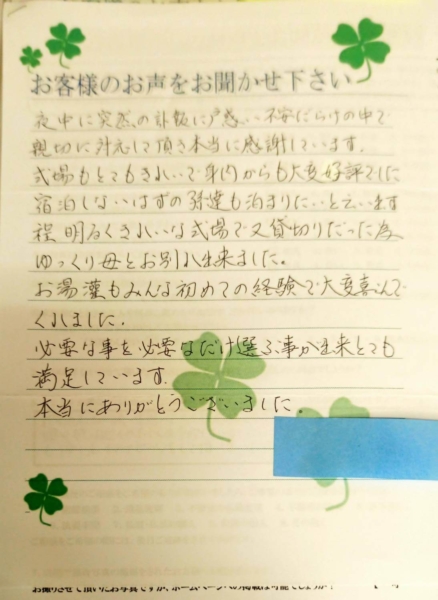 お客様のお声をお聞かせ下さい
夜中に突然の訃報に戸惑い不安だらけの中で
親切に対応して頂き本当に感謝しています。
式場もとてもきれいで身内からも大変好評でした
宿泊しないはずの弟達も泊まりたいと言います
程 明るくきれいな式場で又貸切りだった為、
ゆっくり母とお別れ出来ました。
お湯灌もみんな初めての経験で大変喜んで
くれました.
必要な事を必要なだけ選ぶ事が出来とても
満足しています.
本当にありがとうございました.
お撮りさせて頂いたお写真ですが、ホームページへの掲載は可能でしょうか